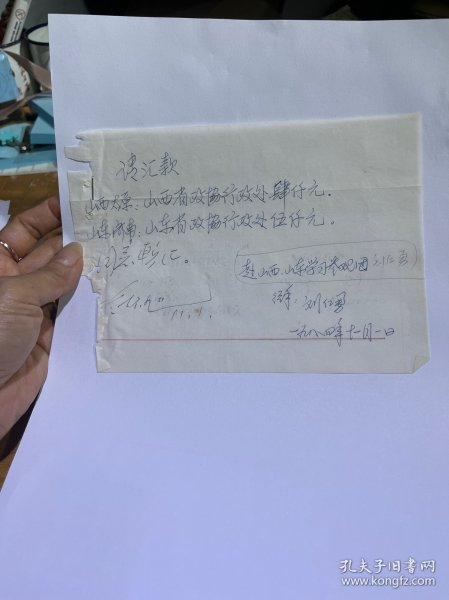 请汇款
山西太原：山西省政协行政处肆仟元.
山东济南：山东省政协行政处伍仟元.
赴山西、山东学习参观团
一九八四年十一月一日
11.1.
孔夫子旧书网
www.kongfz.com